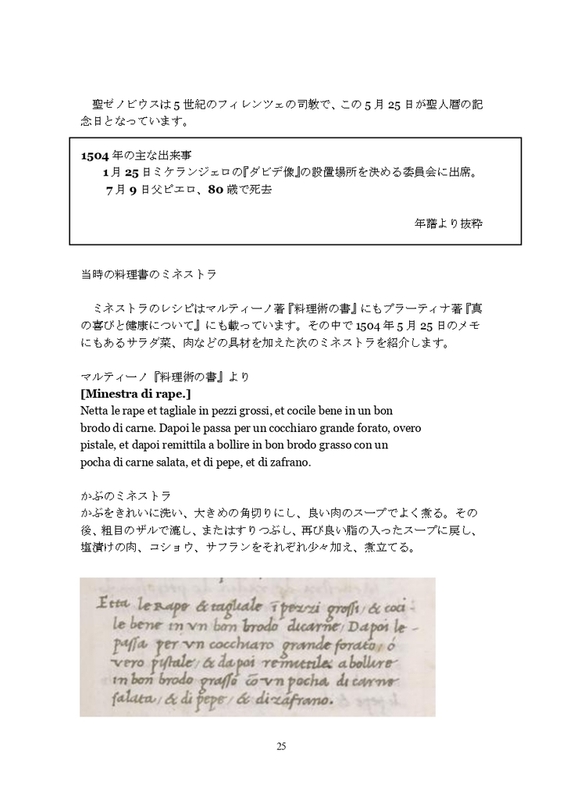 聖ゼノビウスは5世紀のフィレンツェの司教で、この5月25日が聖人暦の記
念日となっています。
1504年の主な出来事
1月25日ミケランジェロの『ダビデ像』の設置場所を決める委員会に出席。
7月9日父ピエロ、80歳で死去
年譜より抜粋
当時の料理書のミネストラ
ミネストラのレシピはマルティーノ著『料理術の書』にもプラーティナ著『真
の喜びと健康について』にも載っています。その中で1504年5月25日のメモ
にもあるサラダ菜、肉などの具材を加えた次のミネストラを紹介します。
マルティーノ『料理術の書』より
[Minestra di rape.]
Netta le rape et tagliale in pezzi grossi, et cocile bene in un bon
brodo di carne. Dapoi le passa per un cocchiaro grande forato, overo
pistale, et dapoi remittila a bollire in bon brodo grasso con un
pocha di carne salata, et di pepe, et di zafrano.
かぶのミネストラ
かぶをきれいに洗い、大きめの角切りにし、良い肉のスープでよく煮る。その
後、粗目のザルで漉し、またはすりつぶし、再び良い脂の入ったスープに戻し、
塩漬けの肉、コショウ、サフランをそれぞれ少々加え、煮立てる。
Etta le rape & tagliale ī pezzi grossi / & coci -
le bene in vn bon brodo dicarne / Dapoi le -
passa per vn cocchiaro grande forato / ó
vero pistale / & dapoi remittila abollire
in bon brodo grasso cō vn pocha di carne
salata / & di pepe / & dizafrano.
25